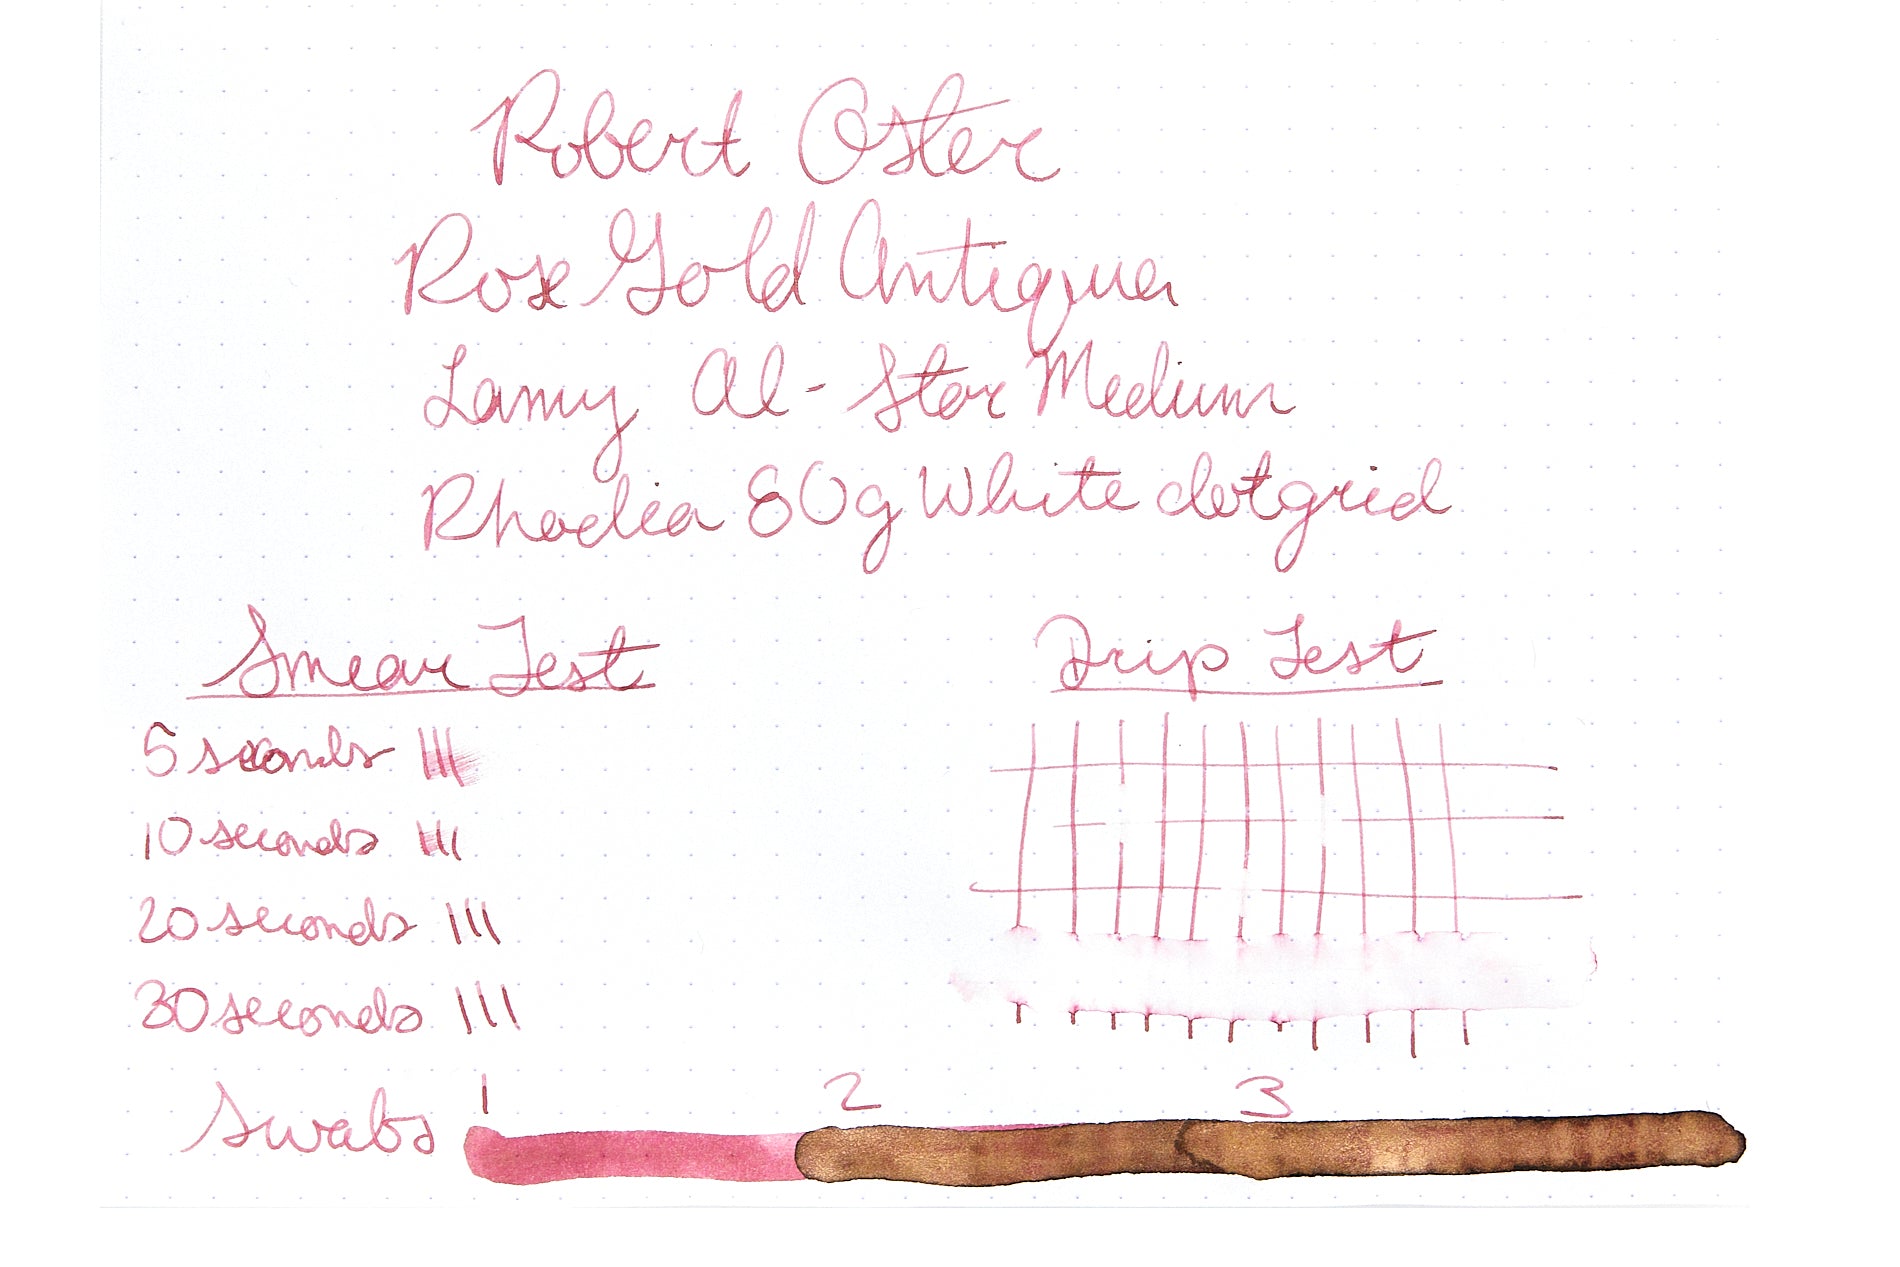 Robert Oster
Rose Gold Antiqua
Lamy Al-Star Medium
Rhodia 80g White dotgrid
Smear Test
Drip Test
5 seconds
10 seconds
20 seconds
30 seconds
Swabs 1 2 3